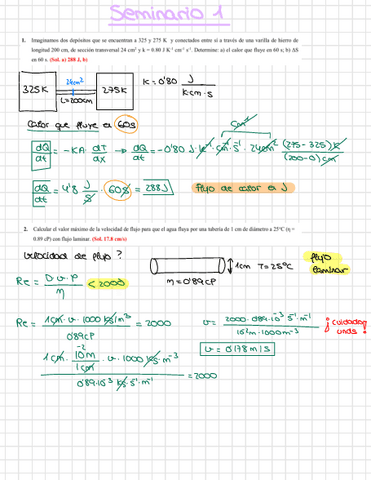 Seminario 1
1. Imaginemos dos depósitos que se encuentran a 325 y 275 K y conectados entre sí a través de una varilla de hierro de
longitud 200 cm, de sección transversal 24 cm² y k = 0.80 J K⁻¹ cm⁻¹ s⁻¹. Determine: a) el calor que fluye en 60 s; b) ΔS
en 60 s. (Sol. a) 288 J, b)
325K 24cm² L=200cm 275K K=0'80 J / K·cm·s
Calor que fluye en 60s
dQ/dt = -KA · dT/dx → dQ/dt = -0'80 J·K⁻¹·cm⁻¹·s⁻¹ · 24cm² (275-325)K / (200-0)cm
cm²
dQ/dt = 4'8 J/s · 60s = 288J Flujo de calor en J
2. Calcular el valor máximo de la velocidad de flujo para que el agua fluya por una tubería de 1 cm de diámetro a 25°C (η =
0.89 cP) con flujo laminar. (Sol. 17.8 cm/s)
Velocidad de flujo? 1cm T=25°C flujo laminar
Re = D·v·ρ / η < 2000 η=0'89cP
Re = 1cm · v · 1000 kg/m³ / 0'89cP = 2000 v = 2000·0'89·10⁻³ s⁻¹·m⁻¹ / 10⁻²m·1000m⁻³ ¡cuidado unds!
v = 0'178 m/s
1cm · 10⁻²m/1cm · v · 1000 kg·m⁻³ / 0'89·10⁻³ kg·s⁻¹·m⁻¹ = 2000